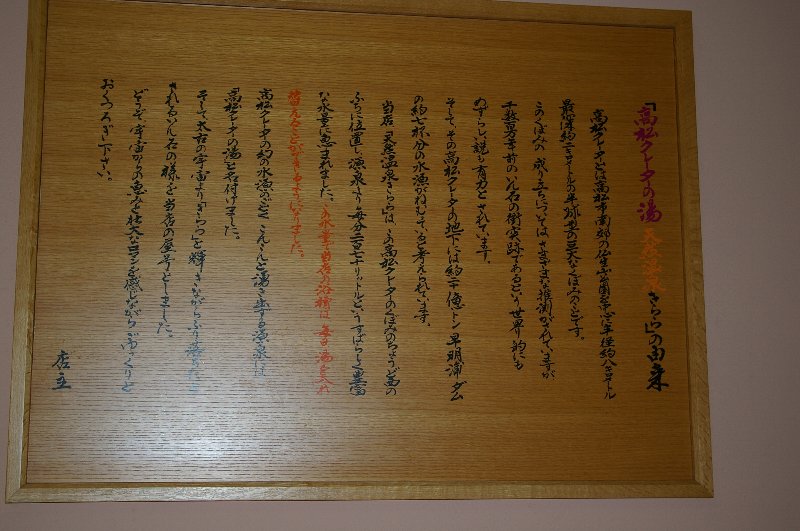 「高松クレーターの湯 天然温泉きらら」の由来
高松クレーターとは高松市南部の仏生山公園を中心に半径約八キロメートル
最深部約二キロメートルの半球型の巨大なくぼみのことです。
このくぼみの成り立ちについては、さまざまな推測がされていますが
千数百万年前のいん石の衝突跡であるという世界的にも
めずらしい説も有力とされています。
そしてその高松クレーターの地下には約二十億トン、早明浦ダム
の約七杯分の水源がねむっていると考えられています。
当店、天然温泉きららは、この高松クレーターのくぼみのちょうど西の
ふちに位置し、源泉より毎分二百七十リットルというすばらしく豊富
な水量に恵まれました。この水量で当店の浴槽は、毎日湯を入れ
替えることができるようになりました。
高松クレーターの幻の水源のごとく、こんこんと湧き出する温泉は
「高松クレーターの湯」と名付けました。
そして太古の宇宙より「きらら」と輝きながらふり
されるいん石の様を当店の屋号としました。
どうぞ、宇宙からの恵みと壮大なロマンを感じながらごゆっくりと
おくつろぎ下さい。
店主